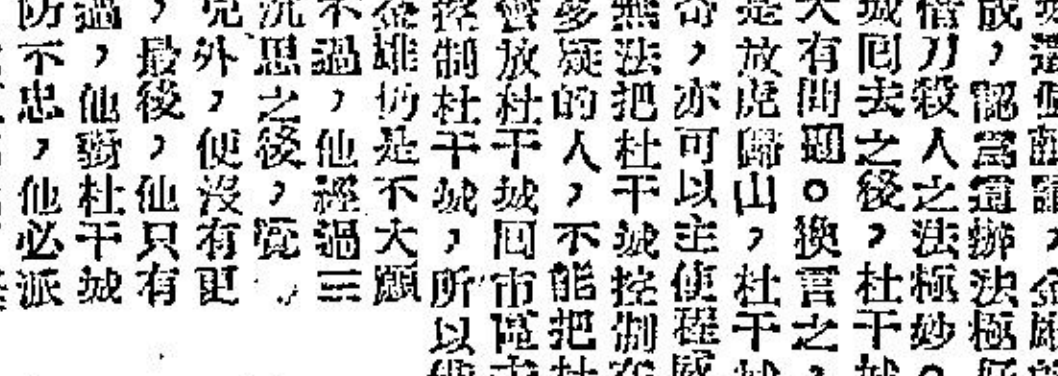 成，認為這辦法極
借刀殺人之法極妙。
城回去之後，杜干城
大有問題。換言之，
是放虎歸山，杜干城
奇，亦可以主使程威
無法把杜干城控制在
多疑的人，不能把杜
會放杜干城回市區
控制杜干城，所以
金雄仍是不大願
不過，他經過三
沉思之後，覺
外，便沒有更
，最後，他只有
過，他對杜干城
防不忠，他必派